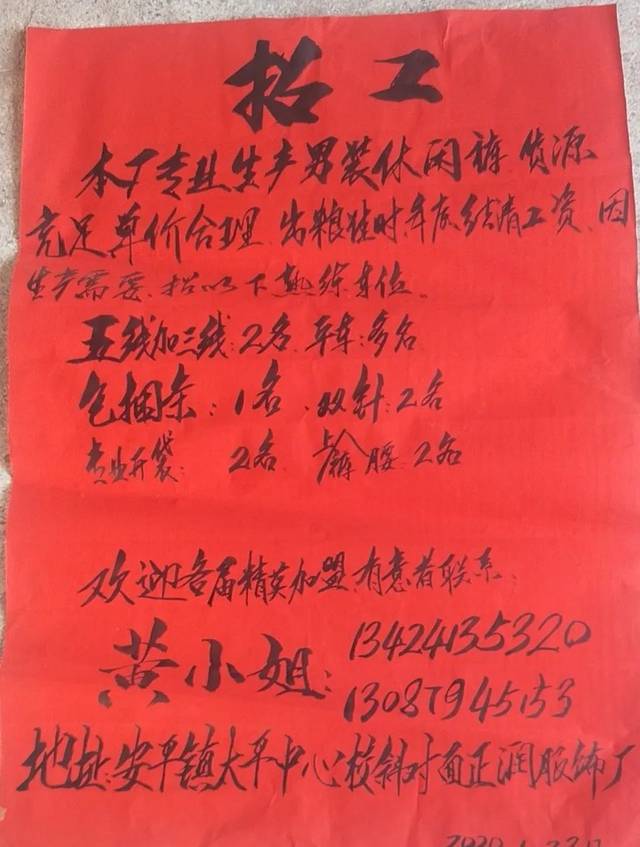 招工
本厂专业生产男装休闲裤,货源
充足,单价合理,出粮准时,年底结清工资,因
生产需要,招以下熟练车位。
五线加三线:2名,平车:多名
包捆条:1名,双针:2名
专业开袋:2名,上裤腰:2名
欢迎各届精英加盟,有意者联系:
黄小姐:13424135320
13087945153
地址:安平镇大平中心校斜对面正润服饰厂